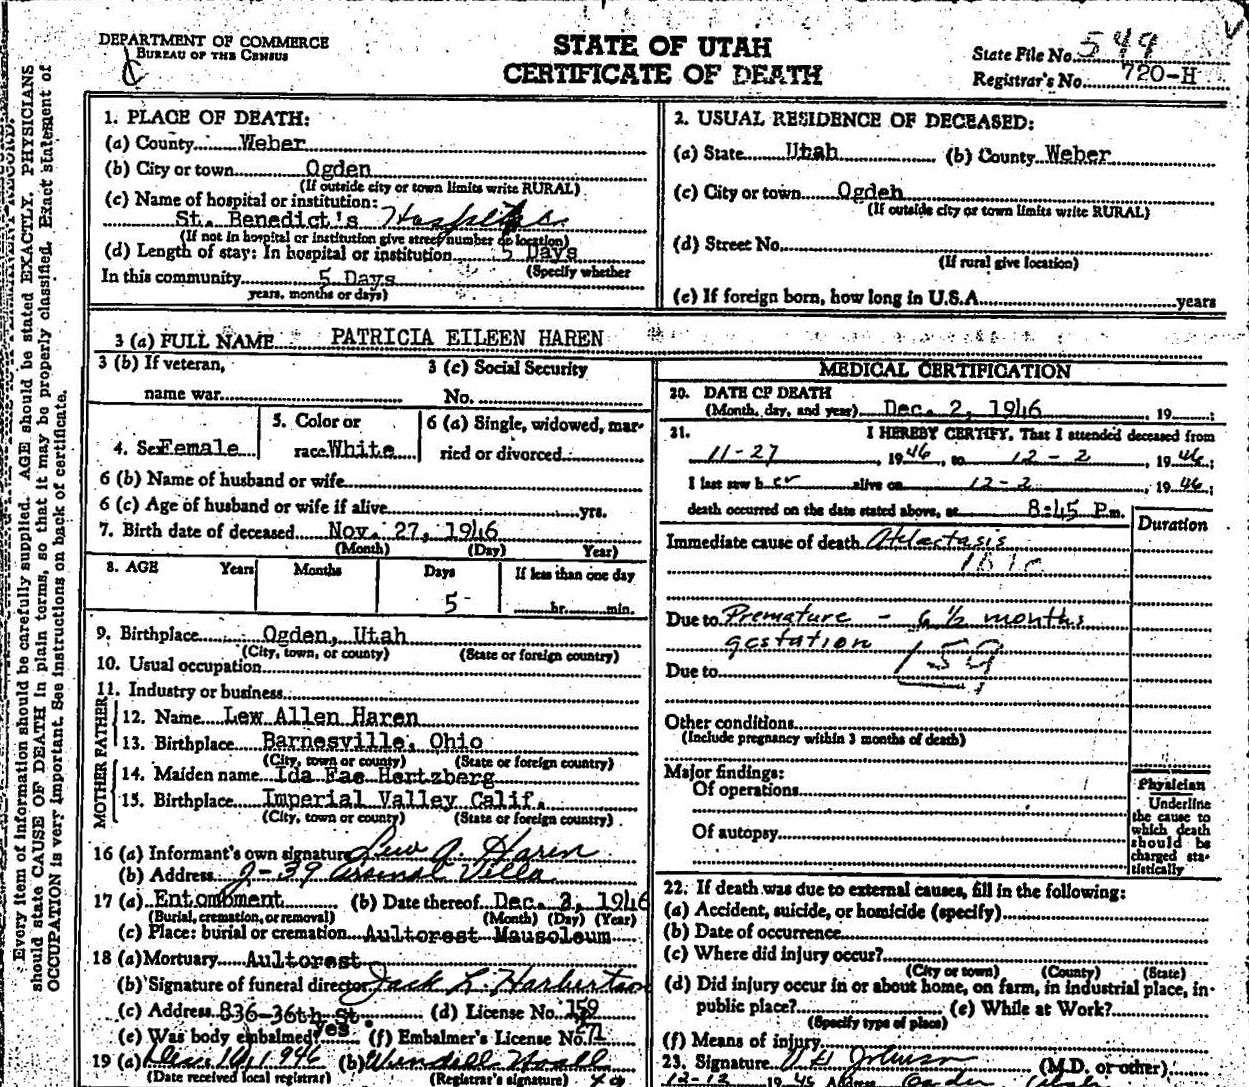 DEPARTMENT OF COMMERCE
BUREAU OF THE CENSUS
STATE OF UTAH
CERTIFICATE OF DEATH
State File No. 549
Registrar's No. 720-H
Every item of information should be carefully supplied. AGE should be stated EXACTLY. PHYSICIANS
should state CAUSE OF DEATH in plain terms, so that it may be properly classified. Exact statement of
OCCUPATION is very important. See instructions on back of certificate.
1. PLACE OF DEATH:
(a) County Weber
(b) City or town Ogden
(If outside city or town limits write RURAL)
(c) Name of hospital or institution:
St. Benedict's Hospital
(If not in hospital or institution give street number or location)
(d) Length of stay: In hospital or institution 5 Days
(Specify whether
In this community 5 Days
years, months or days)
2. USUAL RESIDENCE OF DECEASED:
(a) State Utah (b) County Weber
(c) City or town Ogden
(If outside city or town limits write RURAL)
(d) Street No.
(If rural give location)
(e) If foreign born, how long in U.S.A. years
3 (a) FULL NAME PATRICIA EILEEN HAREN
3 (b) If veteran, 3 (c) Social Security
name war No.
4. Sex Female 5. Color or race White 6 (a) Single, widowed, married or divorced
6 (b) Name of husband or wife
6 (c) Age of husband or wife if alive yrs.
7. Birth date of deceased Nov. 27, 1946
(Month) (Day) Year)
8. AGE Years Months Days If less than one day
5 hr. min.
9. Birthplace Ogden, Utah
(City, town, or county) (State or foreign country)
10. Usual occupation
11. Industry or business
FATHER
12. Name Lew Allen Haren
13. Birthplace Barnesville, Ohio
(City, town or county) (State or foreign country)
MOTHER
14. Maiden name Ida Fae Hertzberg
15. Birthplace Imperial Valley Calif.
(City, town or county) (State or foreign country)
16 (a) Informant's own signature Lew A. Haren
(b) Address J-39 Arsenal Villa
17 (a) Entombment (b) Date thereof Dec. 3, 1946
(Burial, cremation, or removal) (Month) (Day) (Year)
(c) Place: burial or cremation Aultorest Mausoleum
18 (a) Mortuary Aultorest
(b) Signature of funeral director Jack L. Harbertson
(c) Address 836-36th St. (d) License No. 159
(e) Was body embalmed? yes (f) Embalmer's License No. 571
19 (a) 1946 (b) Wendell
(Date received local registrar) (Registrar's signature)
MEDICAL CERTIFICATION
20. DATE OF DEATH
(Month, day, and year) Dec. 2, 1946, 19 ;
21. I HEREBY CERTIFY, That I attended deceased from
11-27, 1946, to 12-2, 1946;
I last saw her alive on 12-2, 1946;
death occurred on the date stated above, at 8:45 P.m.
Duration
Immediate cause of death Atelectasis
Due to Premature - 6 1/2 months
gestation
159
Due to
Other conditions
(Include pregnancy within 3 months of death)
Major findings:
Of operations
Of autopsy
Physician
Underline
the cause to
which death
should be
charged sta-
tistically
22. If death was due to external causes, fill in the following:
(a) Accident, suicide, or homicide (specify)
(b) Date of occurrence
(c) Where did injury occur?
(City or town) (County) (State)
(d) Did injury occur in or about home, on farm, in industrial place, in-
public place? (e) While at Work?
(Specify type of place)
(f) Means of injury
23. Signature Johnson (M.D. or other)
12-12 Ogden Utah